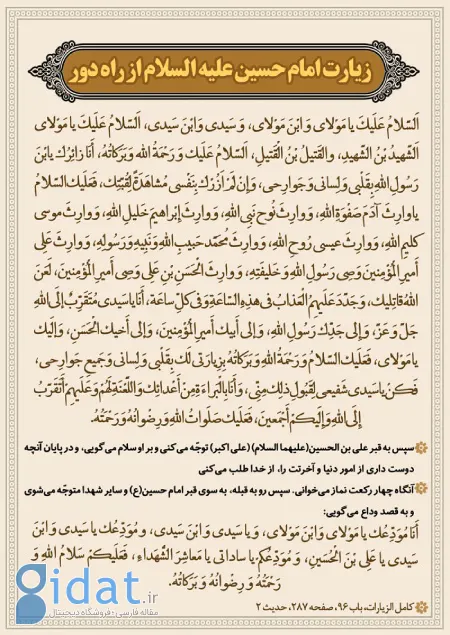 زیارت امام حسین علیه السلام از راه دور
اَلسَّلامُ عَلَيكَ يا مَولايَ وَابنَ مَولايَ، وَ سَيدي وَابنَ سَيدي، اَلسَّلامُ عَلَيكَ يا مَولايَ
الشَّهيدُ بْنُ الشَّهيدِ، والقَتيلُ بْنُ القَتيلِ، اَلسَّلامُ عَلَيك وَ رَحْمَةُ الله وَ بَرَكاتُه، أَنا زائِرُك يابنَ
رَسولِ اللهِ بِقَلبي وَ لِساني وَ جَوارِحي، وَ إنْ لَمْ أَزُرْكَ بِنَفْسي مُشاهَدَةً لِقُبَّتِك، فَعَلَيكَ السَّلامُ
يا وارِثَ آدَمَ صَفْوَةِ اللهِ، وَ وارِثَ نُوحٍ نَبي اللهِ، وَ وارِثَ إبْراهيمَ خَليلِ اللهِ، وَ وارِثَ موسى
كليمِ اللهِ، وَ وارِثَ عيسى رُوحِ اللهِ، وَ وارِثَ مُحَمَّد حَبيبِ اللهِ وَ نَبِيهِ وَ رَسُولِهِ، وَ وارِثَ عَلي
أميرِ الْمُؤْمِنينَ وَصِي رَسُولِ اللهِ وَ خَليفَتِهِ، وَ وارِثَ الْحَسَنِ بْنِ عَلي وَصِي أميرِ الْمُؤْمِنينَ، لَعَنَ
اللهُ قاتِليك، وَ جَدَّدَ عَلَيهِمُ الْعَذابَ في هذِهِ السّاعَةِ وَ في كُلِّ ساعَة، أَنا يا سَيدي مُتَقَرِّبٌ إلَى اللهِ
جَلَّ وَ عَزَّ، وَ إلى جَدِّك رَسُولِ اللهِ، وَ إلى أَبيك أميرِ الْمُؤْمِنينَ، وَ إلى أَخيك الْحَسَنِ، وَ إلَيك
يا مَولايَ، فَعَلَيك السَّلامُ وَ رَحْمَةُ اللهِ وَ بَرَكاتُهُ بِزِيارَتي لَك بِقَلْبي وَ لِساني وَ جَميعِ جَوارِحي،
فَكُنْ يا سَيدي شَفيعي لِقَبُولِ ذلِك مِنّي، وَ أَنا بِالْبَراءَةِ مِنْ أَعْدائِك وَ اللَّعْنَةِ لَهُمْ وَ عَلَيهِمْ أَتَقَرَّبُ
إلَى اللهِ وَ إلَيكُمْ أَجْمَعينَ، فَعَلَيك صَلَواتُ اللهِ وَ رِضْوانُهُ وَ رَحْمَتُهُ.
سپس به قبر علی بن الحسین(علیهما السلام) (علی اکبر) توجّه می کنی و بر او سلام می گویی، و در پایان آنچه
دوست داری از امور دنیا و آخرتت را، از خدا طلب می کنی
آنگاه چهار رکعت نماز می خوانی. سپس رو به قبله، به سوی قبر امام حسین(ع) و سایر شهدا متوجّه می شوی
و به قصد وداع می گویی:
أَنَا مُوَدِّعُك يا مَولايَ وَابنَ مَولايَ، وَ يا سَيدي وَ ابْنَ سَيدي، وَ مُوَدِّعُك يا سَيدي وَ ابْنَ
سَيدي يا عَلِي بْنَ الْحُسَيْنِ، وَ مُوَدِّعُكم يا ساداتي يا مَعاشِرَ الشُّهَداءِ، فَعَلَيكُمْ سَلامُ اللهِ وَ
رَحْمَتُهُ وَ رِضْوانُهُ وَ بَرَكاتُهُ.
کامل الزیارات، باب ۹۶، صفحه ۲۸۷، حدیث ۲
gidat.ir
مقاله فارسی - فروشگاه دیجیتال